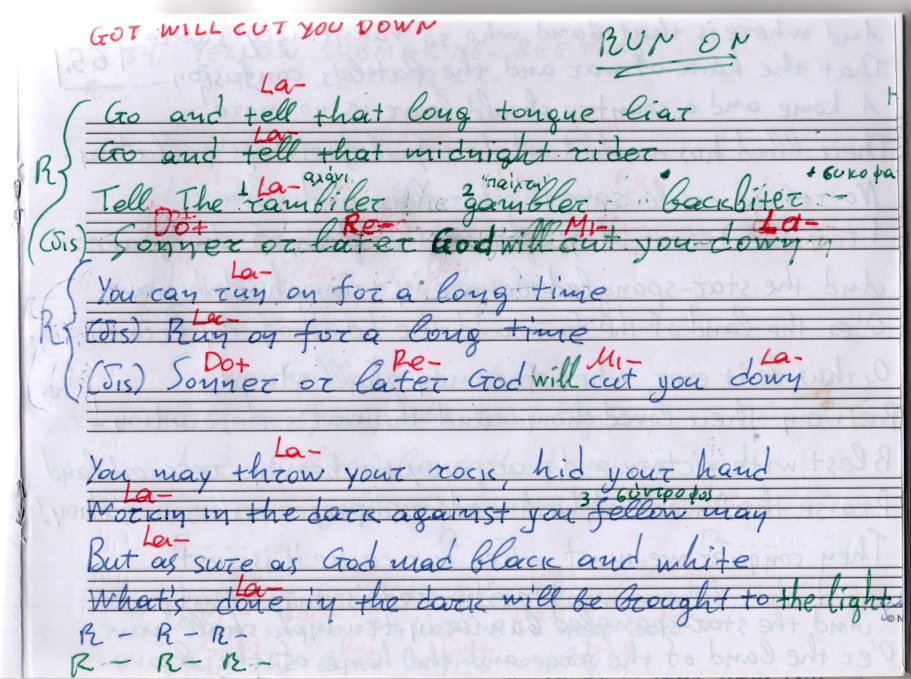 GOT WILL CUT YOU DOWN
RUN ON
La-
Go and tell that long tongue liar
La-
R Go and tell that midnight rider
1 La- αλάνι 2 "παίχτη" + συκοφα
Tell The rambiler gambler backbiter --
Do+ Re- Mi- La-
(δis) Sonner or later God will cut you down
La-
You can run on for a long time
La-
R (δis) Run on for a long time
Do+ Re- Mi- La-
(δis) Sonner or later God will cut you down
La-
You may throw your rock, hid your hand
La- 3 σύντροφος
Workin in the dark against you fellow may
La-
But as sure as God mad black and white
La-
What's done in the dark will be brought to the light
R - R - R -
R - R - R -